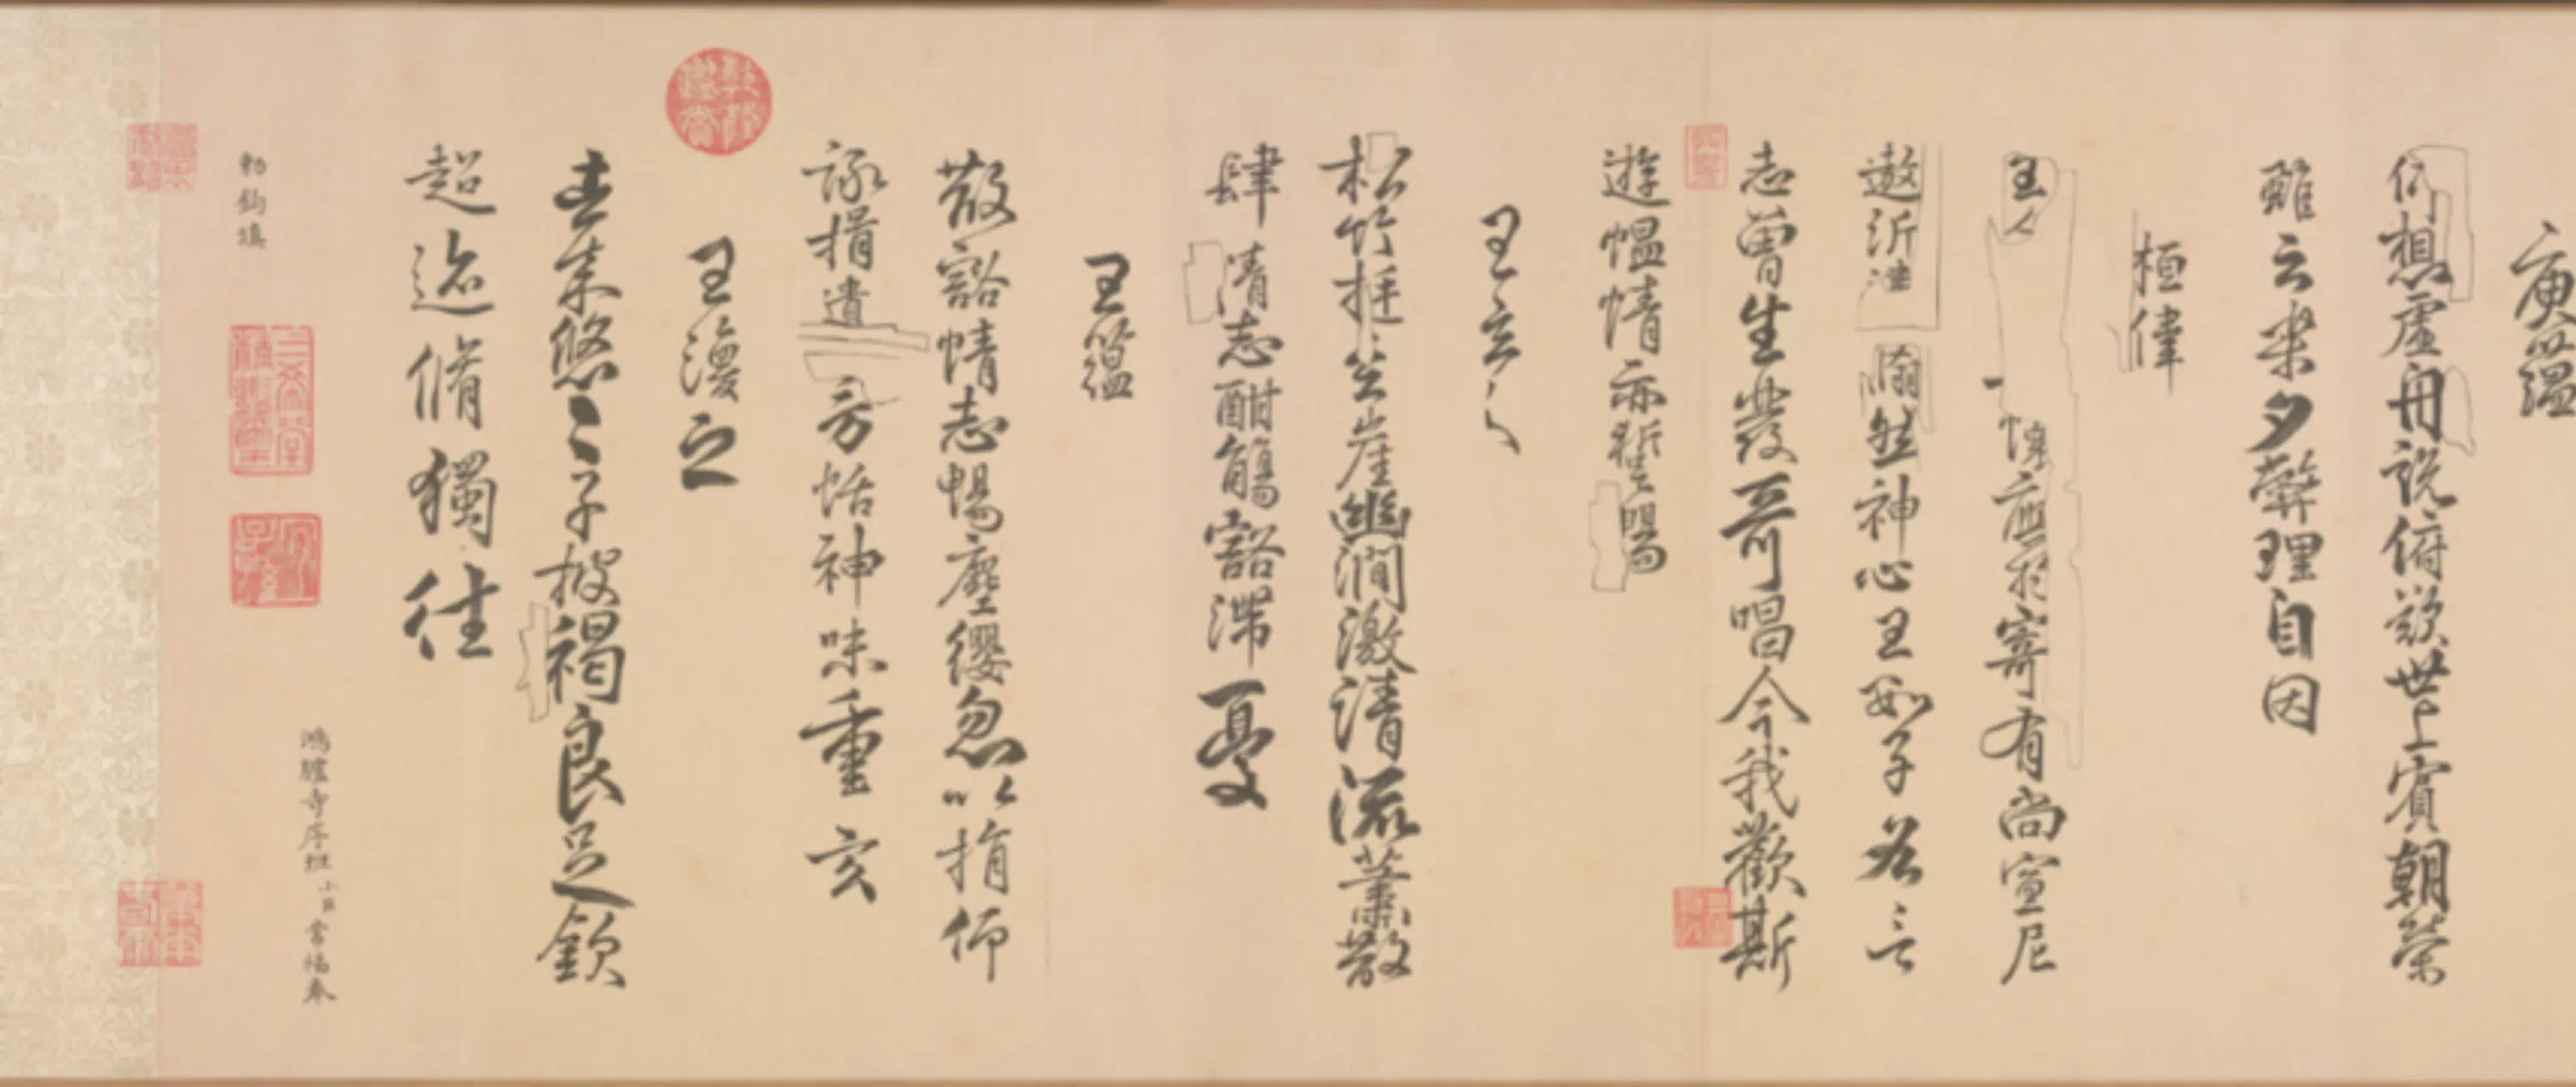 庾蘊
仰想虛舟說俯歎世上賓朝榮
雖云樂夕弊理自因
桓偉
主人懷應於寄有尚宣尼
遨沂津翛然神心王數子各言
志曾生發奇唱今我歡斯
遊慍情亦暫暢
王玄之
松竹挺巖崖幽澗激清流蕭散
肆情志酣觴豁滯憂
王蘊
散豁情志暢塵纓忽以捐仰
詠挹遺芳怡神味重玄
王渙之
去來悠悠子披褐良足欽
超迹脩獨往
鴻臚寺序班小臣常福奉
勅鈎填